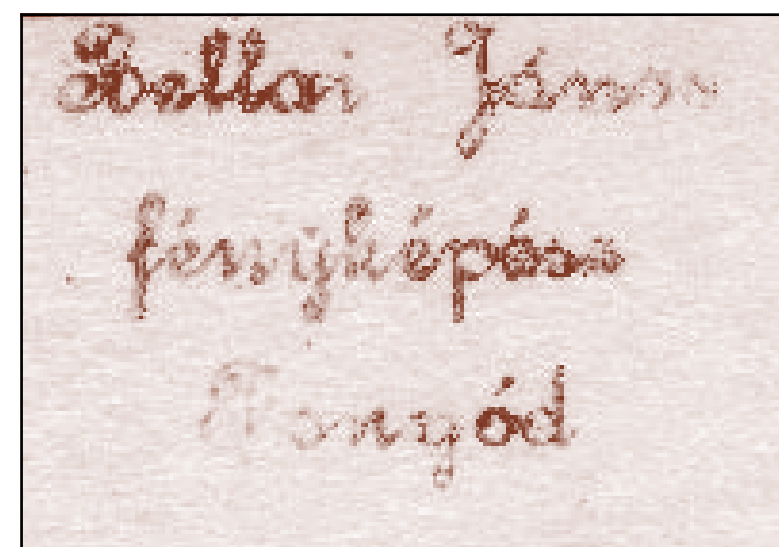 Kellai János
fényképész
Fonyód